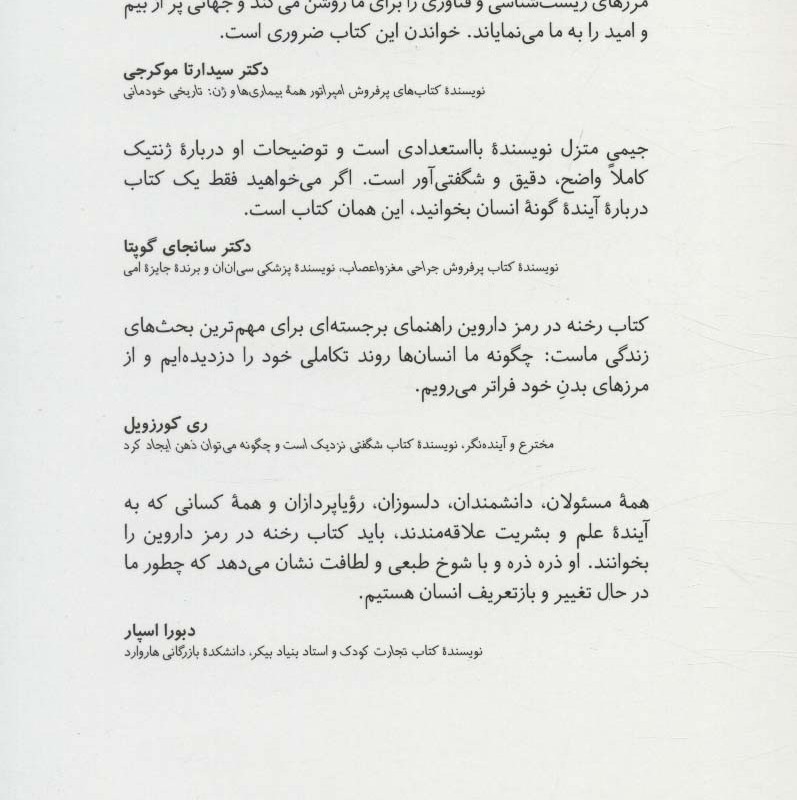 مرزهای زیست‌شناسی و فناوری را برای ما روشن می‌کند و جهانی پر از بیم
و امید را به ما می‌نمایاند. خواندن این کتاب ضروری است.
دکتر سیدارتا موکرجی
نویسندهٔ کتاب‌های پرفروش امپراتور همهٔ بیماری‌ها و ژن: تاریخی خودمانی
جیمی متزل نویسندهٔ بااستعدادی است و توضیحات او دربارهٔ ژنتیک
کاملاً واضح، دقیق و شگفتی‌آور است. اگر می‌خواهید فقط یک کتاب
دربارهٔ آیندهٔ گونهٔ انسان بخوانید، این همان کتاب است.
دکتر سانجای گوپتا
نویسندهٔ کتاب پرفروش جراحی مغزواعصاب، نویسندهٔ پزشکی سی‌ان‌ان و برندهٔ جایزهٔ امی
کتاب رخنه در رمز داروین راهنمای برجسته‌ای برای مهم‌ترین بحث‌های
زندگی ماست: چگونه ما انسان‌ها روند تکاملی خود را دزدیده‌ایم و از
مرزهای بدنِ خود فراتر می‌رویم.
ری کورزویل
مخترع و آینده‌نگر، نویسندهٔ کتاب شگفتی نزدیک است و چگونه می‌توان ذهن ایجاد کرد
همهٔ مسئولان، دانشمندان، دلسوزان، رؤیاپردازان و همهٔ کسانی که به
آیندهٔ علم و بشریت علاقه‌مندند، باید کتاب رخنه در رمز داروین را
بخوانند. او ذره ذره و با شوخ طبعی و لطافت نشان می‌دهد که چطور ما
در حال تغییر و بازتعریف انسان هستیم.
دبورا اسپار
نویسندهٔ کتاب تجارت کودک و استاد بنیاد بیکر، دانشکدهٔ بازرگانی هاروارد